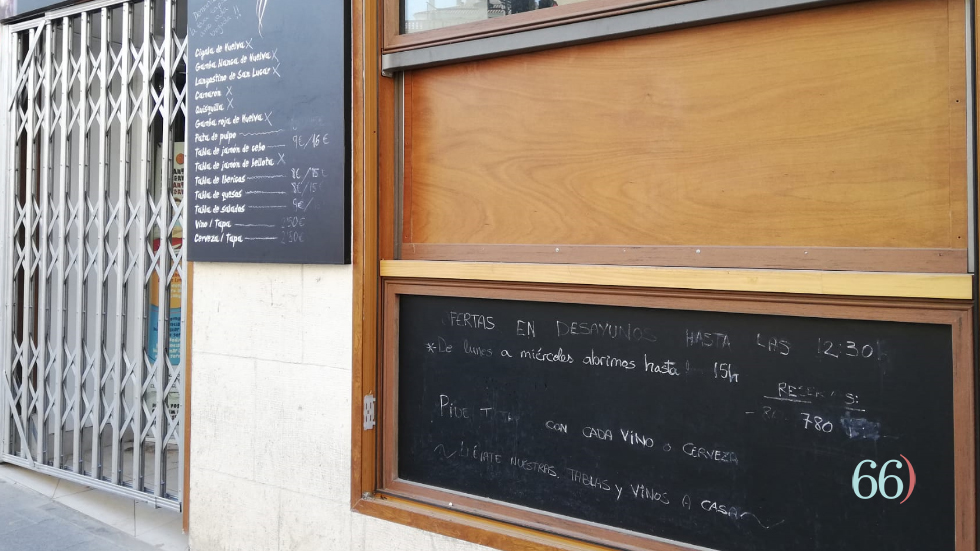 Cigala de Huelva X
Gamba blanca de Huelva X
Langostino de San Lucar X
Camarón X
Quisquilla X
Gamba roja de Huelva X
Pata de pulpo
Tabla de jamón de cebo 9€ /16 €
Tabla de jamón de bellota X
Tabla de Ibéricos 8€ /15
Tabla de quesos 8€ /15
Tabla de salados 9€/
Vino / Tapa 2'50€
Cerveza / Tapa 2'50€
FERTAS EN DESAYUNOS HASTA LAS 12:30
*De lunes a miércoles abrimos hasta 15h
RESERVAS:
780
PIDE CON CADA VINO o CERVEZA
~ LLÉVATE NUESTRAS TABLAS y VINOS A CASA ~
66)